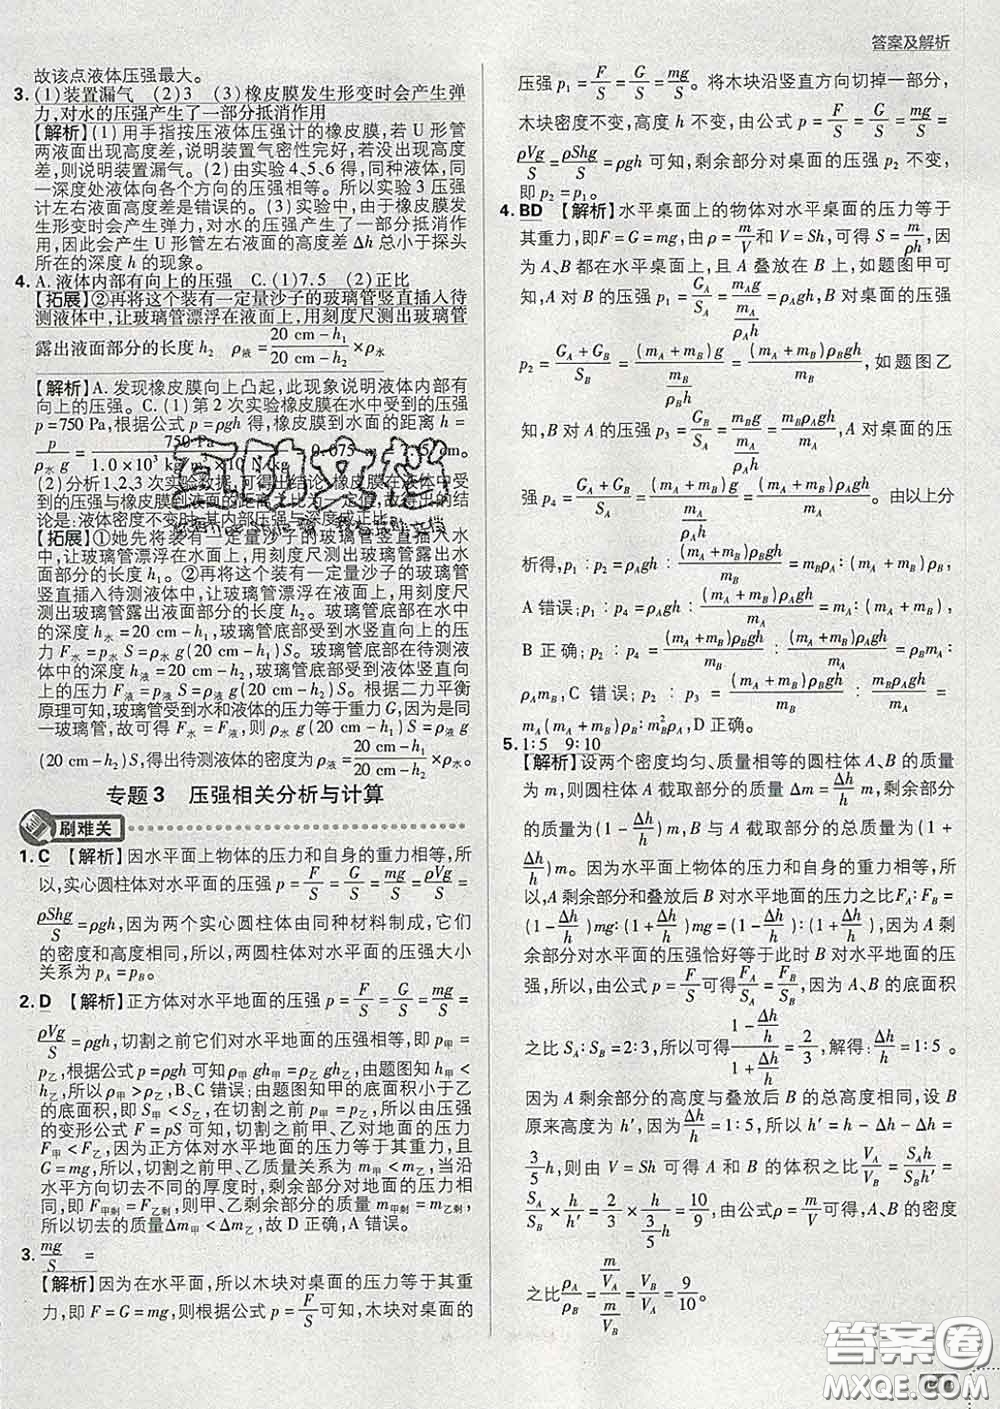 答案及解析
故该点液体压强最大。
3. (1)装置漏气 (2)3 (3)橡皮膜发生形变时会产生弹
力,对水的压强产生了一部分抵消作用
【解析】(1)用手指按压液体压强计的橡皮膜,若 U 形管
两液面出现高度差,说明装置气密性完好,若没出现高度
差,则说明装置漏气。(2)由实验4、5、6得,同种液体,同
一深度处液体向各个方向的压强相等。所以实验3压强
计左右液面高度差是错误的。(3)实验中,由于橡皮膜
发生形变时会产生弹力,对水的压强产生了一部分抵消作
用,因此会产生 U 形管左右液面的高度差 Δh 总小于探头
所在的深度 h 的现象。
4. A. 液体内部有向上的压强 C. (1)7.5 (2)正比
【拓展】②再将这个装有一定量沙子的玻璃管竖直插入待
测液体中,让玻璃管漂浮在液面上,用刻度尺测出玻璃管
露出液面部分的长度 h₂ ρ液 = (20 cm - h₁)/(20 cm - h₂) × ρ水
【解析】A. 发现橡皮膜向上凸起,此现象说明液体内部有
向上的压强。C. (1)第2次实验橡皮膜在水中受到的压强
p = 750 Pa,根据公式 p = ρgh 得,橡皮膜到水面的距离 h =
p/(ρ水 g) = 750 Pa/(1.0×10³ kg/m³ ×10 N/kg) = 0.075 m = 7.5 cm。
(2)分析1、2、3次实验数据,可得出结论:橡皮膜在液体中受
到的压强与橡皮膜到液面的距离之比为一定值,故得出的结
论是:液体密度不变时,其内部压强与深度成正比。
【拓展】①她先将装有一定量沙子的玻璃管竖直插入水
中,让玻璃管漂浮在水面上,用刻度尺测出玻璃管露出水
面部分的长度 h₁。②再将这个装有一定量沙子的玻璃管
竖直插入待测液体中,让玻璃管漂浮在液面上,用刻度尺
测出玻璃管露出液面部分的长度 h₂。玻璃管底部在水中
的深度 h水 = 20 cm - h₁,玻璃管底部受到水竖直向上的压
力 F水 = p水 S = ρ水 g(20 cm - h₁)S。玻璃管底部在待测液体
中的深度 h液 = 20 cm - h₂,玻璃管底部受到液体竖直向
上的压力 F液 = p液 S = ρ液 g(20 cm - h₂)S。根据二力平衡
原理可知,玻璃管受到水和液体的压力等于重力 G,因为是同
一玻璃管,故可得 F水 = F液,则 ρ水 g(20 cm - h₁)S = ρ液 g
(20 cm - h₂)S,得出待测液体的密度为 ρ液 = (20 cm - h₁)/(20 cm - h₂) × ρ水。
专题3 压强相关分析与计算
刷难关
1. C 【解析】因水平面上物体的压力和自身的重力相等,所
以,实心圆柱体对水平面的压强 p = F/S = G/S = mg/S = ρVg/S =
ρShg/S = ρgh,因为两个实心圆柱体由同种材料制成,它们
的密度和高度相同,所以,两圆柱体对水平面的压强大小
关系为 pA = pB。
2. D 【解析】正方体对水平地面的压强 p = F/S = G/S = mg/S =
ρVg/S = ρgh,切割之前它们对水平地面的压强相等,即 p甲 =
p乙,根据公式 p = ρgh 可知 ρ甲 gh甲 = ρ乙 gh乙,由题图知 h甲 <
h乙,所以 ρ甲 > ρ乙,B、C 错误;由题图知甲的底面积小于乙
的底面积,即 S甲 < S乙,在切割之前 p甲 = p乙,所以由压强
的变形公式 F = pS 可知,切割之前,甲、乙对地面的压力
F甲 < F乙,因为正方体对水平地面的压力等于其重力,且
G = mg,所以切割之前,甲、乙质量关系为 m甲 < m乙,当沿
水平方向切去不同的厚度时,倒剩余部分的压力相同,
即 F甲剩 = F乙剩,则甲、乙剩余部分的质量 m甲剩 = m乙剩,
所以切去的质量Δm甲 < Δm乙,故 D 正确,A 错误。
3. mg/S =
【解析】因为在水平面,所以木块对桌面的压力等于其重
力,即 F = G = mg,则根据公式 p = F/S 可知,木块对桌面的
压强 p₁ = F/S = G/S = mg/S。将木块沿竖直方向切掉一部分,
木块密度不变,高度 h 不变,由公式 p = F/S = G/S = mg/S =
ρVg/S = ρShg/S = ρgh 可知,剩余部分对桌面的压强 p₂ 不变,
即 p₂ = p₁。
4. BD 【解析】水平桌面上的物体对水平桌面的压力等于
其重力,即F = G = mg,由 ρ = m/V 和 V = Sh,可得 S = m/(ρh),因
为A、B都在水平桌面上,且 A 叠放在 B 上,如题图甲可
知,A 对 B 的压强 p₁ = GA/SA = mAg/(mA/(ρAh)) = ρAgh,B 对桌面的压强
p₂ = (GA + GB)/SB = (mA + mB)g/(mB/(ρBh)) = (mA + mB)ρBgh/mB,如题图乙
知,B 对 A 的压强 p₃ = GB/SA = mBg/(mA/(ρAh)) = mBρAgh/mA,A 对桌面的压
强 p₄ = (GA + GB)/SA = (mA + mB)g/(mA/(ρAh)) = (mA + mB)ρAgh/mA。由以上分
析得,p₁ : p₂ = ρAgh : (mA + mB)ρBgh/mB = ρAmB : (mA + mB)ρB,
A 错误;p₁ : p₄ = ρAgh : (mA + mB)ρAgh/mA = mA : (mA + mB),
B 正确;p₂ : p₄ = (mA + mB)ρBgh/mB : (mA + mB)ρAgh/mA = ρBmA :
ρAmB,C 错误;p₂ : p₃ = (mA + mB)ρBgh/mB : mBρAgh/mA =
mA(mA + mB)ρB : m²BρA,D 正确。
5. 1:5 9:10
【解析】设两个密度均匀、质量相等的圆柱体 A、B 的质量
为 m,则圆柱体 A 截取部分的质量 Δm = Δh/h m,A 剩余部分
的质量为(1 - Δh/h)m,B 与 A 截取部分的总质量为(1 +
Δh/h)m。因为水平面上物体的压力和自身的重力相等,所
以,A 剩余部分和叠放后 B 对水平地面的压力之比FA : FB =
(1 - Δh/h)mg : (1 + Δh/h)mg = (1 - Δh/h) : (1 + Δh/h),因为A 剩
余部分对水平面的压强恰好等于此时 B 对水平地面的压
强,所以,由公式 p = F/S 可得 FA/SA = FB/SB,因为 A、B 的底面积
之比 SA : SB = 2:3,所以可得 (1 - Δh/h)/(1 + Δh/h) = 2/3,解得:Δh/h = 1:5。
因为 A 剩余部分的高度与叠放后 B 的总高度相同,设 B
原来高度为 h′,因为 Δh/h = 1:5,所以 h′ = h - Δh - Δh =
3/5 h,则由 V = Sh 可得 A 和 B 的体积之比 VA/VB = SAh/SBh′ =
SA/SB × h/h′ = 2/3 × h/(3/5 h) = 10/9,由公式 ρ = m/V 可得,A、B 的密度
之比 ρA/ρB = (m/VA)/(m/VB) = VB/VA = 9/10。
互助文档
答案圈
MXQE.COM